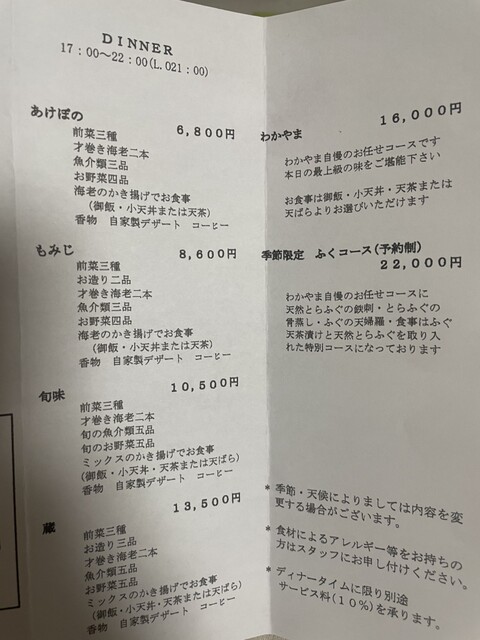 DINNER
17：00～22：00(L.O21：00)
あけぼの
6,800円
前菜三種
才巻き海老二本
魚介類三品
お野菜四品
海老のかき揚げでお食事
(御飯・小天丼または天茶)
香物 自家製デザート コーヒー
もみじ
8,600円
前菜三種
お造り二品
才巻き海老二本
魚介類三品
お野菜四品
海老のかき揚げでお食事
(御飯・小天丼または天茶)
香物 自家製デザート コーヒー
旬味
10,500円
前菜三種
才巻き海老二本
旬の魚介類五品
旬のお野菜五品
ミックスのかき揚げでお食事
(御飯・小天丼・天茶または天ばら)
香物 自家製デザート コーヒー
蔵
13,500円
前菜三種
お造り三品
才巻き海老二本
魚介類五品
お野菜五品
ミックスのかき揚げでお食事
(御飯・小天丼・天茶または天ばら)
香物 自家製デザート コーヒー
わかやま
16,000円
わかやま自慢のお任せコースです
本日の最上級の味をご堪能下さい
お食事は御飯・小天丼・天茶または
天ばらよりお選びいただけます
季節限定 ふくコース(予約制)
22,000円
わかやま自慢のお任せコースに
天然とらふぐの鉄刺・とらふぐの
骨蒸し・ふぐの天婦羅・食事はふぐ
天茶漬けと天然とらふぐを取り入
れた特別コースになっております
* 季節・天候によりましては内容を変
更する場合がございます。
* 食材によるアレルギー等をお持ちの
方はスタッフにお申し付けください。
* ディナータイムに限り別途
サービス料(10%)を承ります。